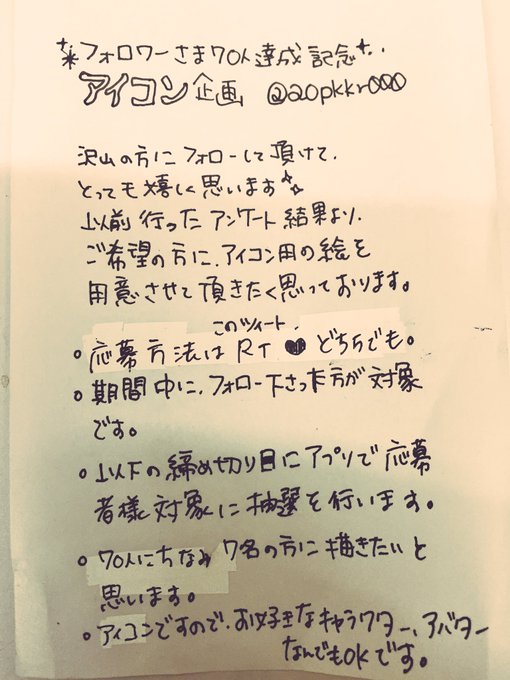 フォロワーさま70人達成記念
アイコン企画 @20pkkr000
沢山の方にフォローして頂けて、
とっても嬉しく思います
以前行ったアンケート結果より、
ご希望の方に、アイコン用の絵を
用意させて頂きたく思っております。
このツイート、
応募方法はRT ♥ どちらでも。
期間中に、フォロー下さった方が対象
です。
以下の締め切り日にアプリで応募
者様対象に抽選を行います。
70人にちなみ7名の方に描きたいと
思います。
アイコンですので、お好きなキャラクター、アバター
なんでもOKです。